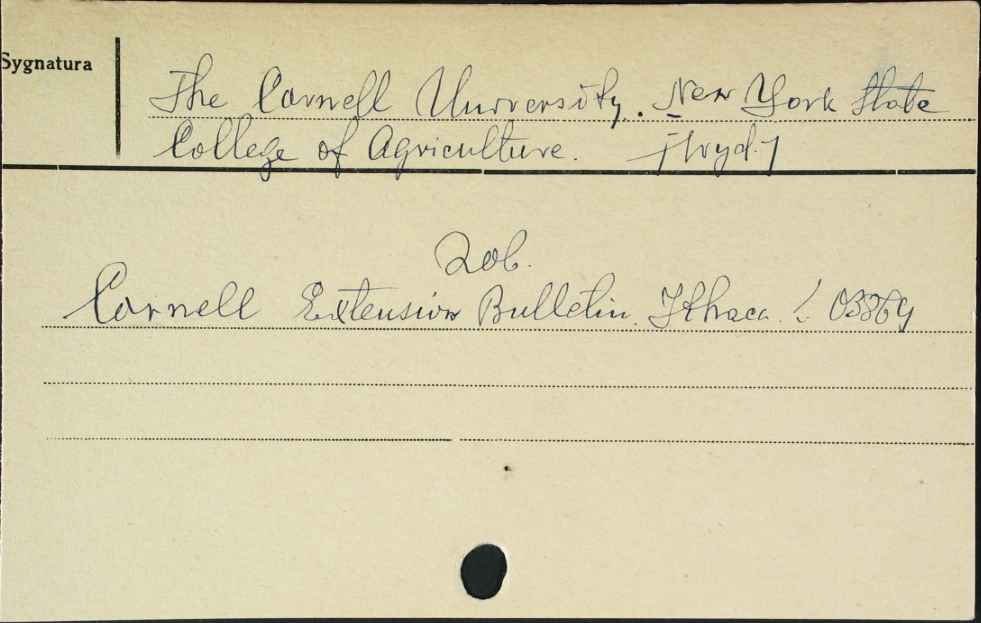 Sygnatura
The Cornell University. New York State
College of Agriculture. /wyd./
Zob.
Cornell Extension Bulletin. Ithaca.